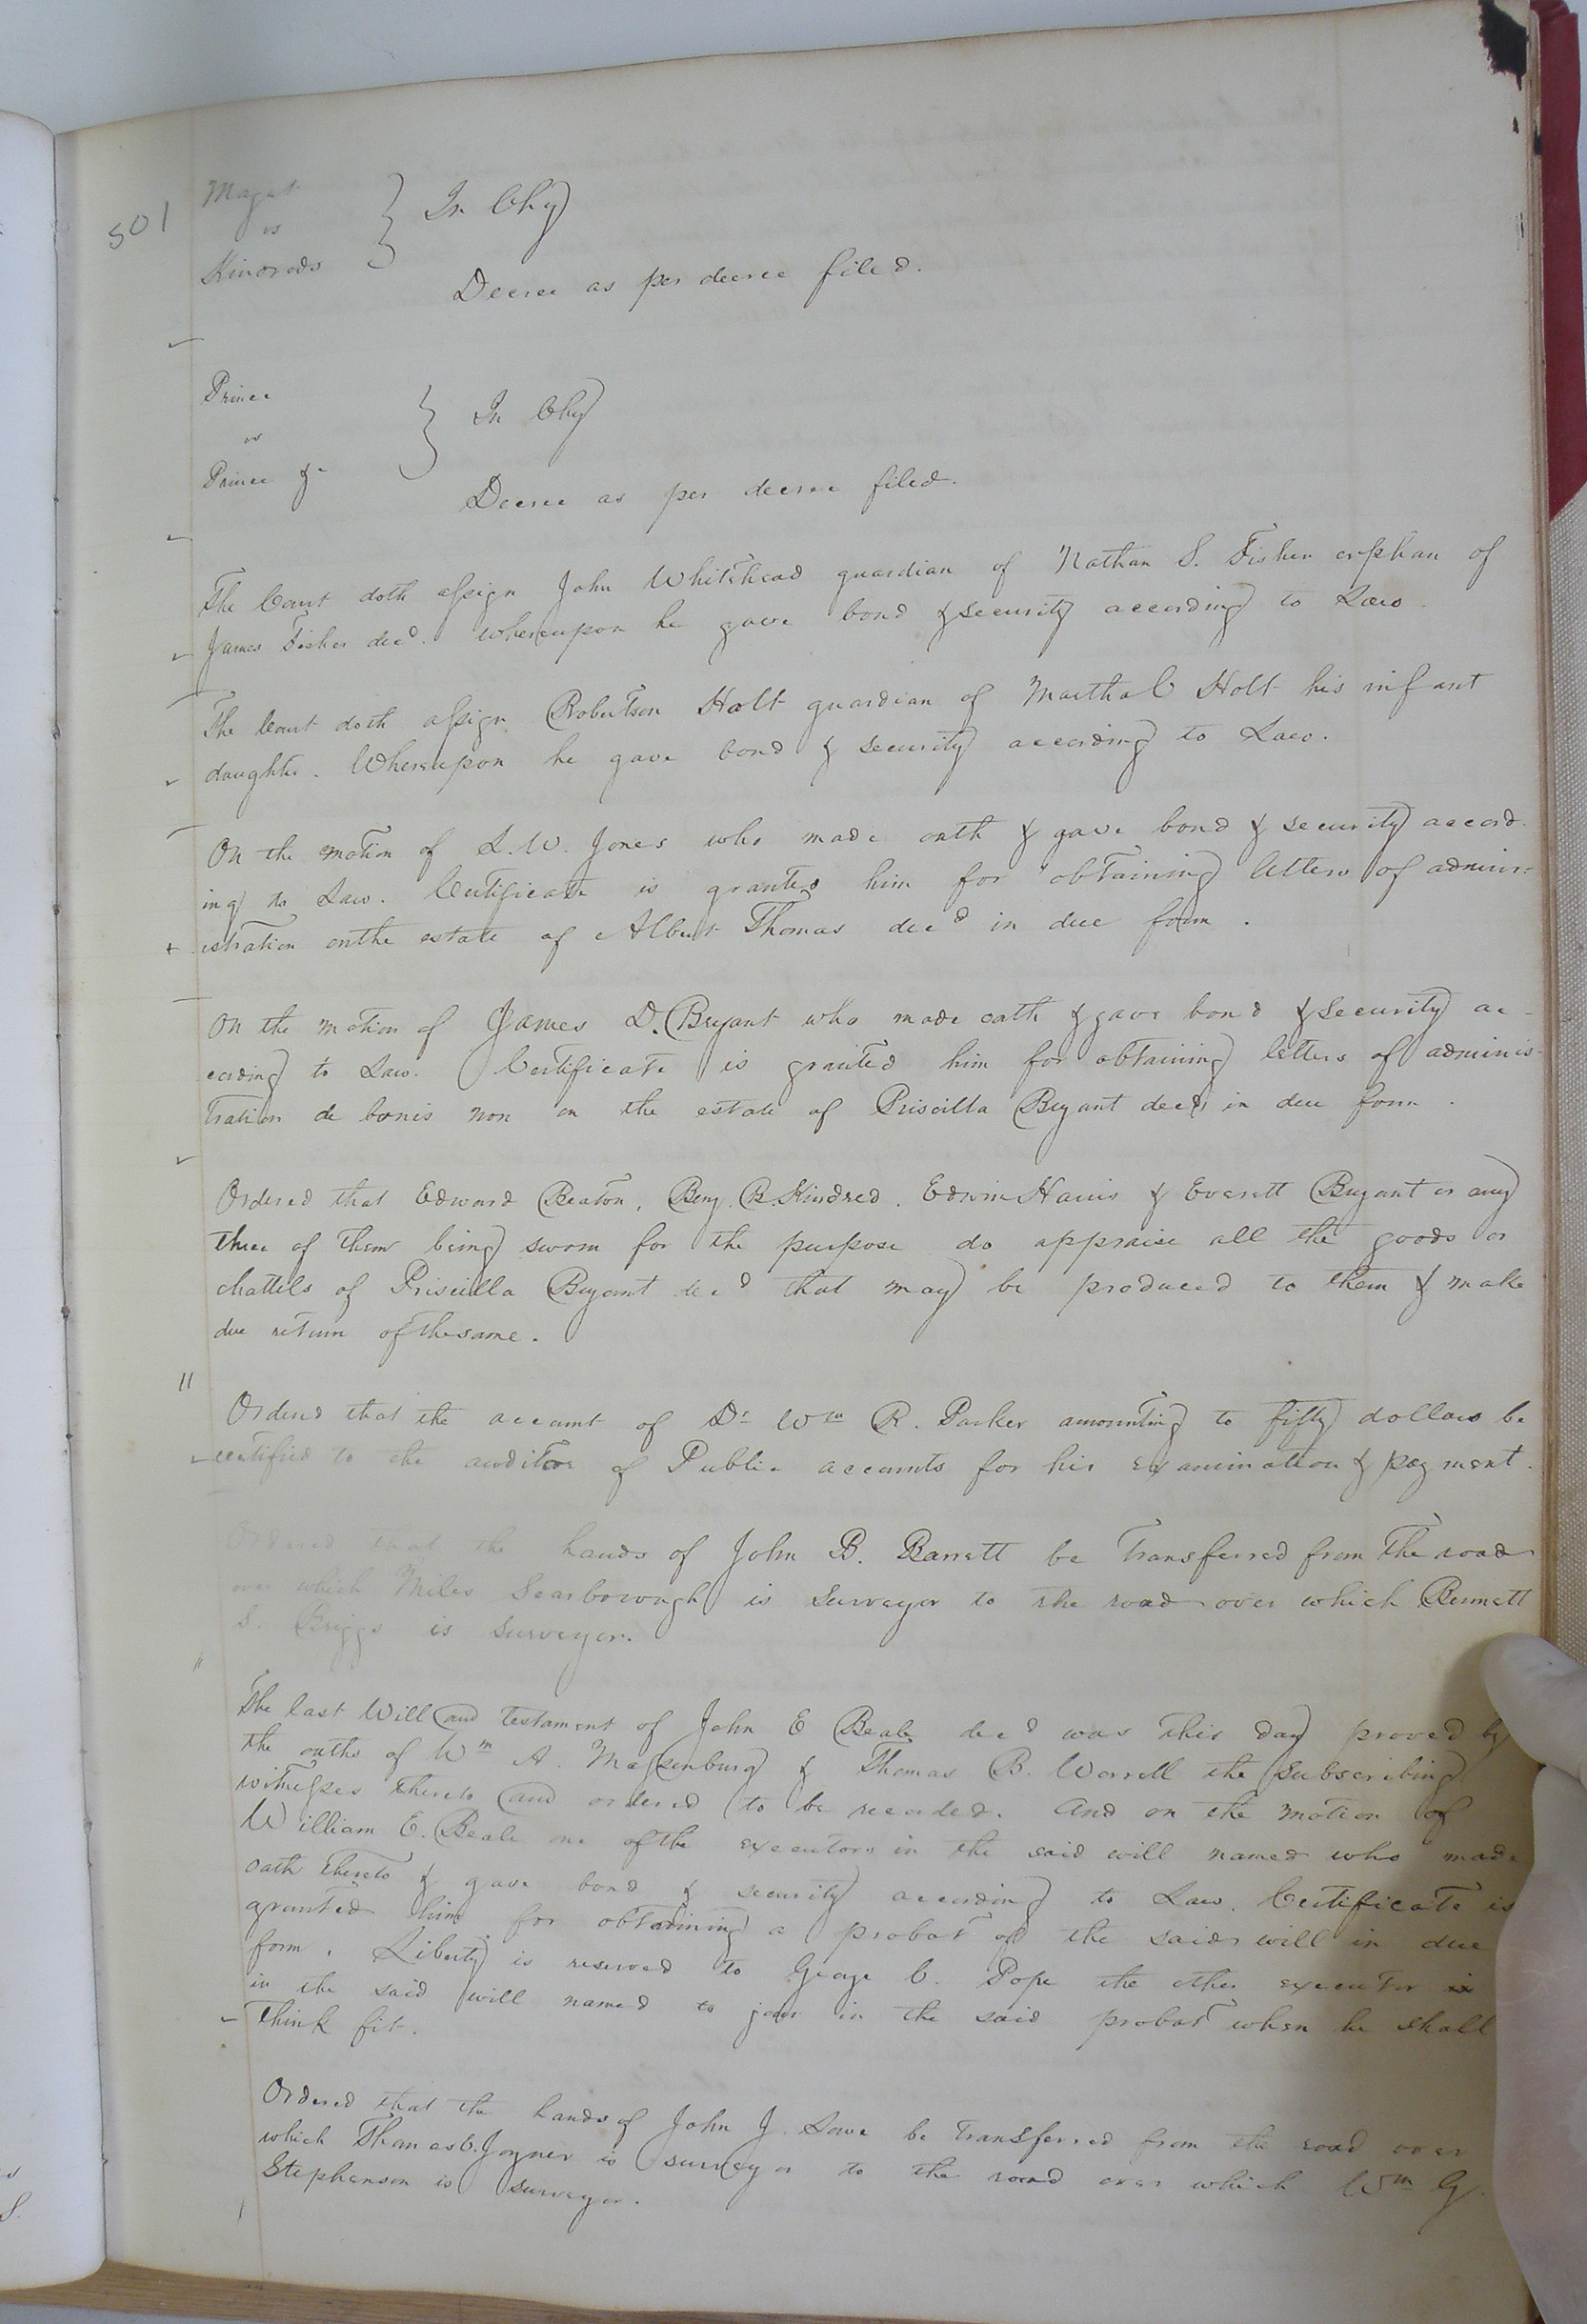 501
Maget
vs
Kindreds
In Chy
Decree as per decree filed.
Prince
vs
Prince &c
In Chy
Decree as per decree filed.
The Court doth assign John Whitehead guardian of Nathan S. Fisher orphan of
James Fisher decd. whereupon he gave bond & security according to Law.
The Court doth assign Robertson Holt guardian of Martha C Holt his infant
daughter. Whereupon he gave bond & security according to Law.
On the motion of L. W. Jones who made oath & gave bond & security accord-
ing to Law. Certificate is granted him for obtaining letters of admin-
istration on the estate of Albert Thomas decd in due form.
On the motion of James D. Bryant who made oath & gave bond & security ac-
cording to Law. Certificate is granted him for obtaining letters of adminis-
tration de bonis non on the estate of Priscilla Bryant decd in due form.
Ordered that Edward Beaton, Benj. B. Kindred, Edwin Harris & Everett Bryant or any
three of them being sworn for the purpose do appraise all the goods or
chattels of Priscilla Bryant decd that may be produced to them & make
due return of the same.
Ordered that the account of Dr Wm R. Parker amounting to fifty dollars be
certified to the auditor of Public accounts for his examination & payment.
Ordered that the hands of John B. Barrett be transferred from the road
over which Miles Scarborough is Surveyor to the road over which Bennett
S. Briggs is Surveyor.
The last Will and testament of John E Beale decd was this day proved by
the oaths of Wm A. Massenburg & Thomas B. Worrell the subscribing
witnesses thereto and ordered to be recorded. And on the motion of
William E. Beale one of the executors in the said will named who made
oath thereto & gave bond & security according to Law. Certificate is
granted him for obtaining a probat of the said will in due
form. Liberty is reserved to George C. Pope the other executor
in the said will named to join in the said probat when he shall
think fit.
Ordered that the hands of John J. Lowe be transferred from the road over
which Thomas C. Joyner is surveyor to the road over which Wm G.
Stephenson is surveyor.